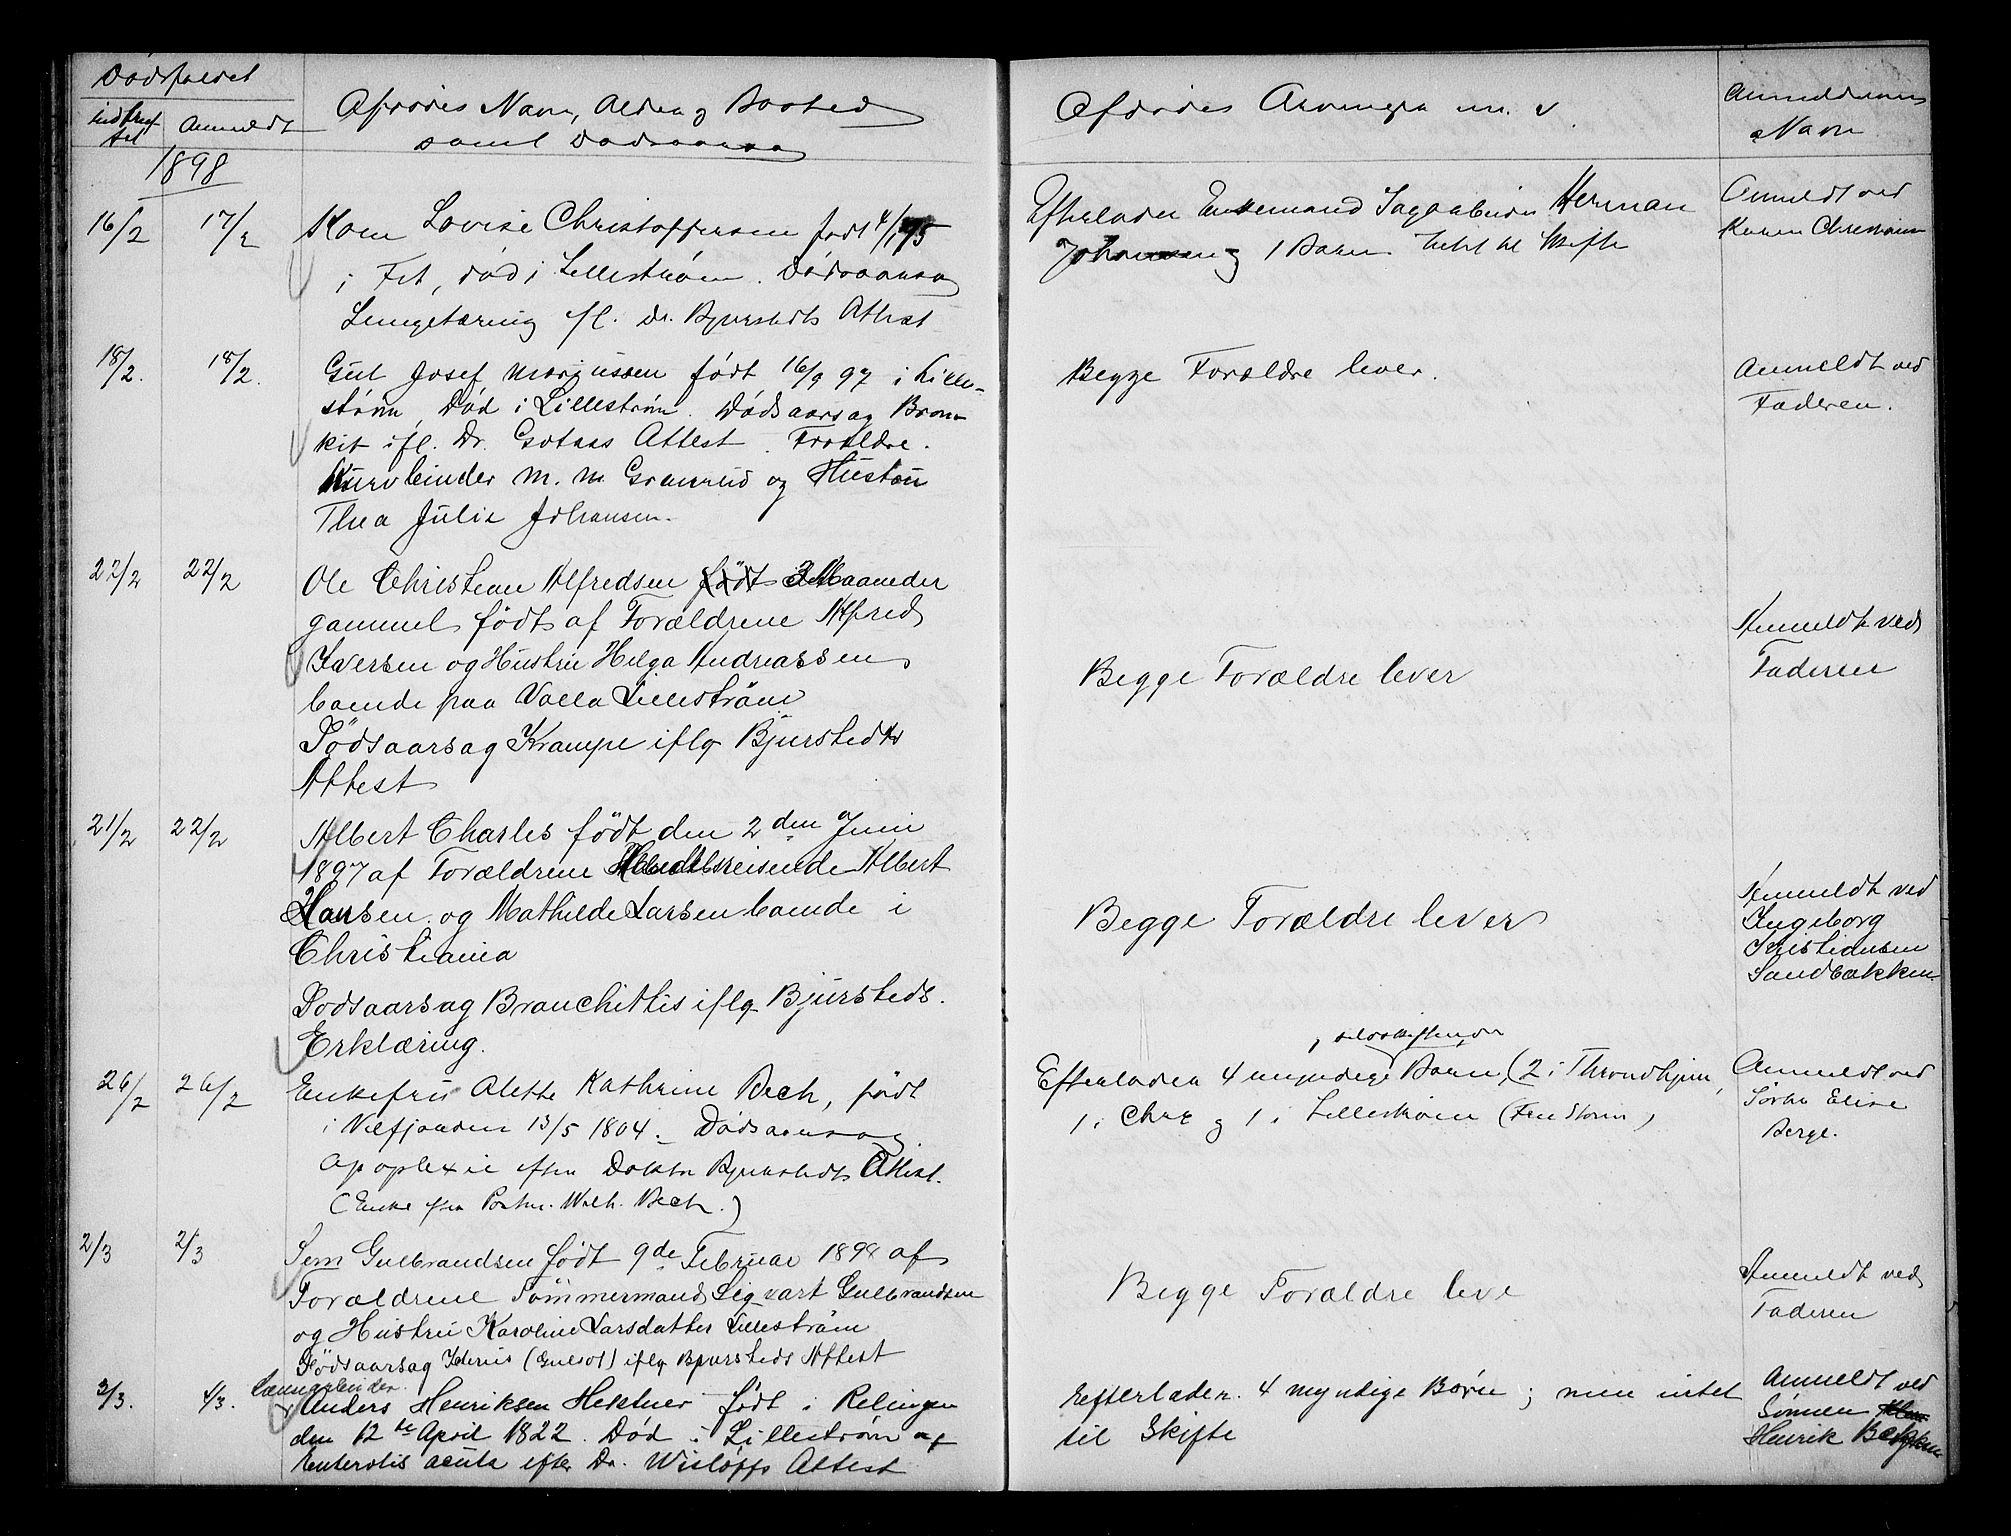 Dødsfaldet
indtruf- Anmeldt
fet
Afdødes Navn, Alder og Bosted
samt Dødsaarsag
Afdødes Arvinger m. v.
Anmelderens
Navn
1898
16/2 17/2
Lovise Christoffersen født 4/1 75
i Fet, død i Lillestrøm. Dødsaarsag
Lungetæring ifl. Dr. Bjursteds Attest
Efterlader Enkemand Sagarbeider Herman
Johansen og 1 Barn. Intet til Skifte
Anmeldt ved
Karen Christiansen
18/2. 18/2.
Gut Josef Marjussen født 16/9 97 i Lille-
strøm, Død i Lillestrøm. Dødsaarsag Bron-
kit ifl. Dr. Gotaas Attest. Forældre.
Kurvbinder M. M. Granerud og Hustru
Thea Julie Johansen.
Begge Forældre lever.
Anmeldt ved
Faderen.
22/2 22/2
Ole Christian Alfredsen født 3 Maaneder
gammel født af Forældrene Alfred
Iversen og Hustru Helga Andreassen
boende paa Volla Lillestrøm
Dødsaarsag Krampe iflg Bjursteds
Attest
Begge Forældre lever
Anmeldt ved
Faderen
21/2 22/2
Albert Charles født den 2den Juni
1897 af Forældrene Handelsreisende Albert
Hansen og Mathilde Larsen boende i
Christiania
Dødsaarsag Bronchittis iflg Bjursteds.
Erklæring.
Begge Forældre lever
Anmeldt ved
Ingeborg
Kristiansen
Sandbakken
26/2 26/2
Enkefru Alette Kathrine Bech, født
i Velfjorden 13/5 1804. Dødsaarsag
Apoplexie efter Doktor Bjursteds Attest.
(Enke fra Postm. Wilh. Bech.)
, selvskiftende
Efterlader 4 myndige Børn, (2 i Throndhjem,
1 i Chra og 1 i Lillestrøm (Fru Storm)
Anmeldt ved
Sørine Elise
Berge.
2/3 2/3
Sem Gulbrandsen født 9de Februar 1898 af
Forældrene Tømmermand Sigvart Gulbrandsen
og Hustru Karoline Larsdatter Lillestrøm
Dødsaarsag Icterus (Gulsot) iflg Bjursteds Attest
Begge Forældre leve
Anmeldt ved
Faderen
3/3. 4/3.
Anders Henriksen Hektner født i Relingen
den 12te April 1822. Død i Lillestrøm af
Enterotis acuta efter Dr. Wisløffs Attest
Efterlader. 4 myndige Børn; men intet
til Skifte
Anmeldt ved
Sønnen
Henrik Bækken